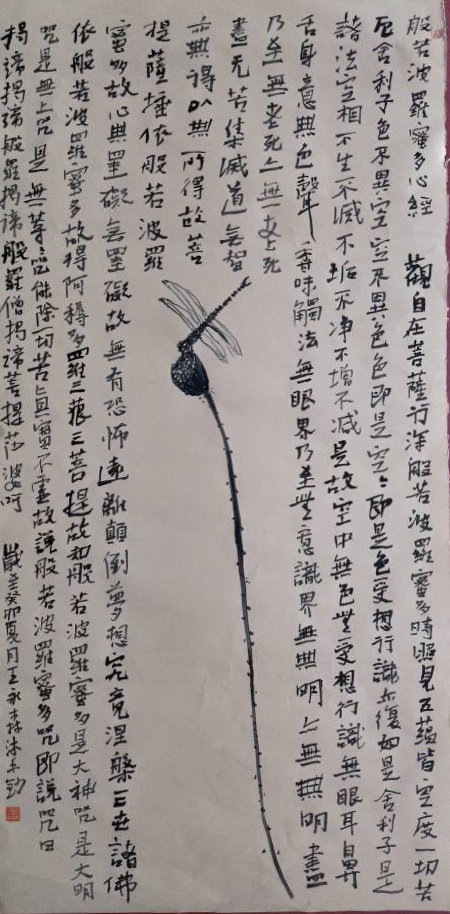 般若波羅蜜多心經 觀自在菩薩行深般若波羅蜜多時照見五蘊皆空度一切苦
厄舍利子色不異空空不異色色即是空〻即是色受想行識亦復如是舍利子是
諸法空相不生不滅不垢不净不增不减是故空中無色無受想行識無眼耳鼻
舌身意無色聲香味觸法無眼界乃至無意識界無無明亦無無明盡
乃至無老死亦無老死
盡无苦集滅道無智
亦無得以無所得故菩
提薩埵依般若波羅
蜜多故心無罣礙無罣礙故無有恐怖遠離顛倒夢想究竟涅槃三世諸佛
依般若波羅蜜多故得阿耨多羅三藐三菩提故知般若波羅蜜多是大神咒是大明
咒是無上咒是無等〻咒能除一切苦真實不虛故說般若波羅蜜多咒即說咒曰
揭諦揭諦般羅揭諦般羅僧揭諦菩提莎婆呵 歲在癸卯夏月王永森沐手鈔